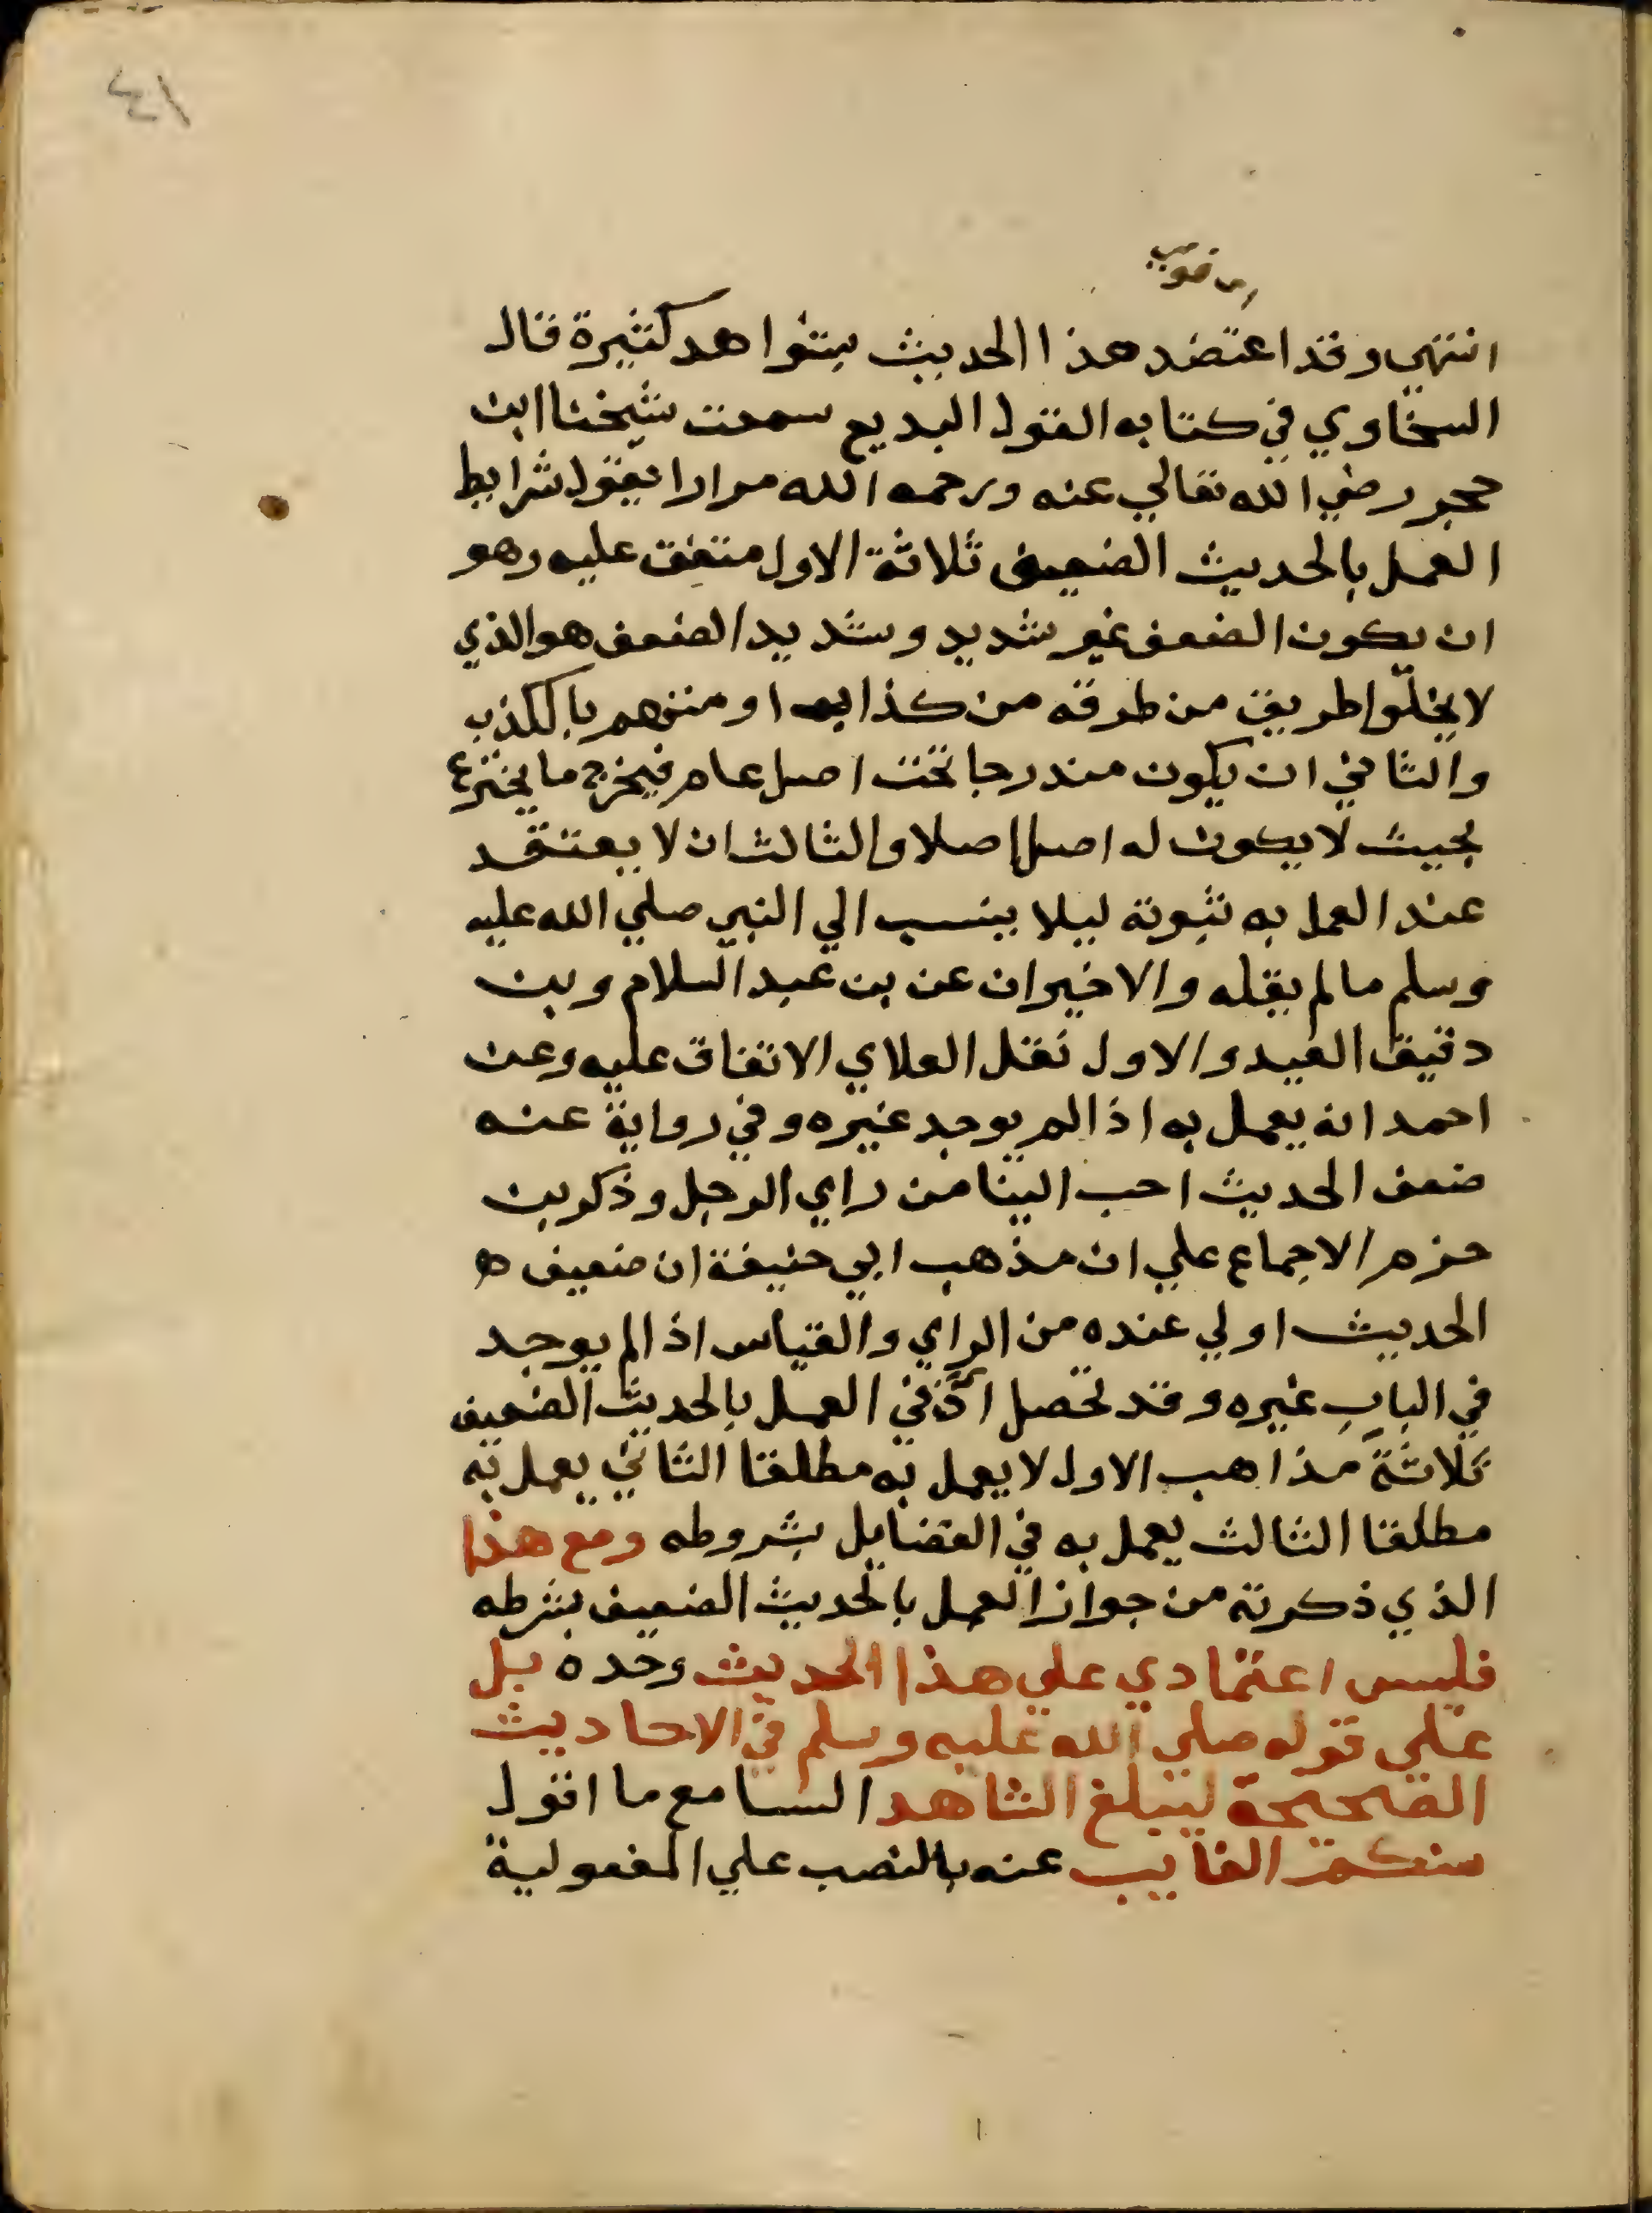 ٤١
اي قوي
انتهى وقد اعتضد هذا الحديث بشواهد كثيرة قال
السخاوي في كتابه القول البديع سمعت شيخنا ابن
حجر رضي الله تعالي عنه ورحمه الله مرارا يقول شرايط
العمل بالحديث الضعيف ثلاثة الاول متفق عليه وهو
ان يكون الضعف غير شديد وشديد الضعف هو الذي
لا يخلوا طريق من طرقه من كذاب او متهم بالكذب
والثاني ان يكون مندرجا تحت اصل عام فيخرج ما يخترع
بحيث لا يكون له اصل اصلا والثالث ان لا يعتقد
عند العمل به ثبوته ليلا ينسب الي النبي صلي الله عليه
وسلم ما لم يقله والاخيران عن بن عبد السلام وبن
دقيق العيد والاول نقل العلاي الاتفاق عليه وعن
احمد انه يعمل به اذا لم يوجد غيره وفي رواية عنه
ضعف الحديث احب الينا من راي الرجل وذكر بن
حزم الاجماع علي ان مذهب ابي حنيفة ان ضعيف
الحديث اولي عنده من الراي والقياس اذا لم يوجد
في الباب غيره وقد تحصل ان في العمل بالحديث الضعيف
ثلاثة مذاهب الاول لا يعمل به مطلقا الثاني يعمل به
مطلقا الثالث يعمل به في الفضايل بشروطه ومع هذا
الذي ذكرته من جواز العمل بالحديث الضعيف بشرطه
فليس اعتمادي علي هذا الحديث وحده بل
علي قوله صلي الله عليه وسلم في الاحاديث
الصحيحة ليبلغ الشاهد السامع ما اقول
منكم الغايب عنه بالنصب علي المفعولية